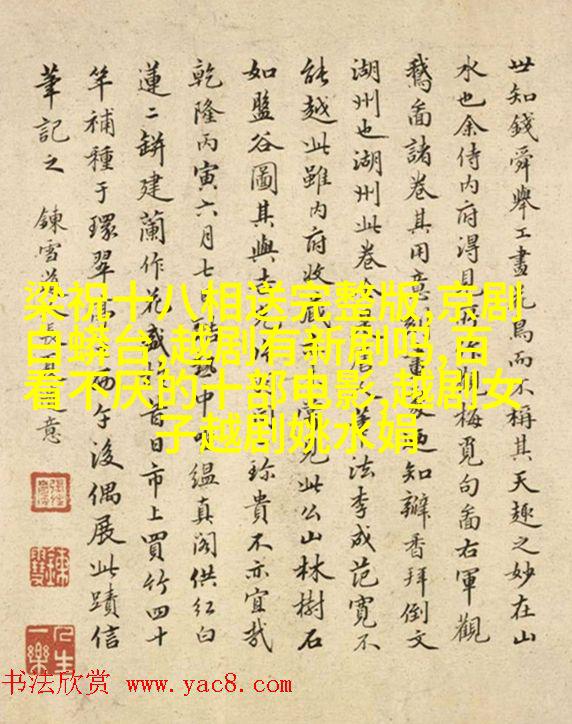 世知錢舜舉工畫花鳥而不稱其天趣之妙在山
水也余侍内府得見梅覓句啚右軍觀
鵝啚諸卷其用意知辦香拜倒文
湖州也湖州此卷法李成范寬不
能越此雖内府收藏見此公山林樹石
如盤谷圖其與珍貴不亦宜哉
乾隆丙寅六月七日中緼真阁供红白
蓮二缾建蘭作花盛百日市上買竹四十
竿補種于環翠午後偶展此蹟信
筆記之 鍊雪意
梁祝十八相送完整版,京剧
白蟒台,越剧有新剧吗,百
看不厌的十部电影,越剧女
子越剧姚水娟
人生一樂
书法欣赏 www.yac8.com